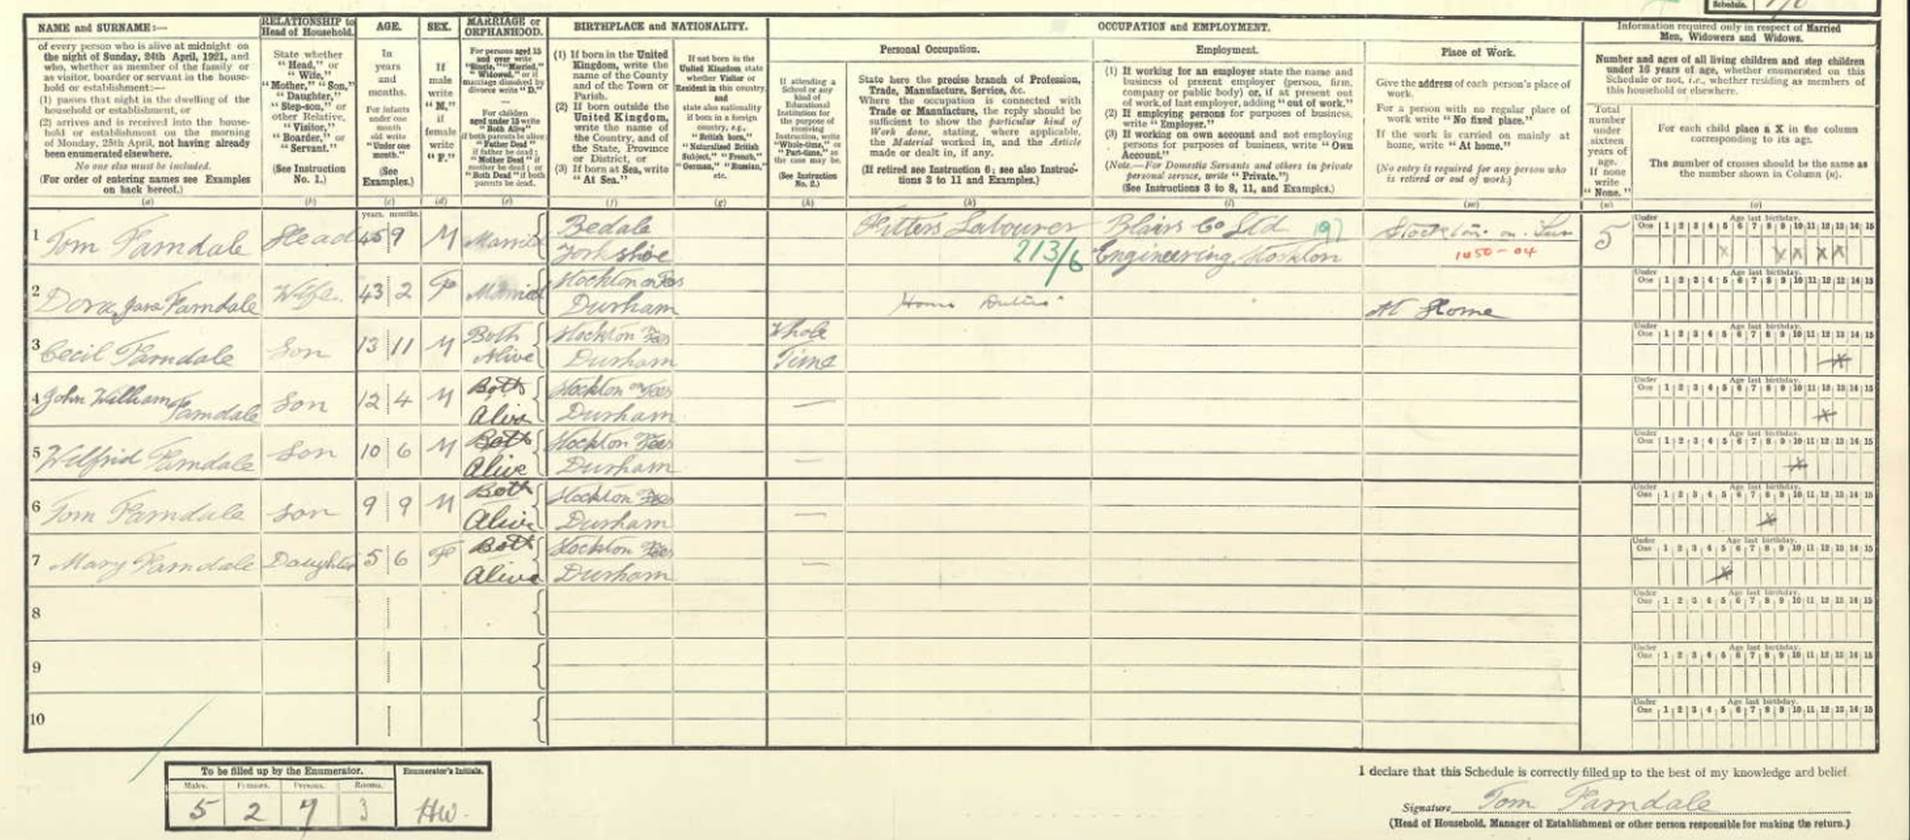 Schedule.
NAME and SURNAME:—
of every person who is alive at midnight on
the night of Sunday, 24th April, 1921, and
who, whether as member of the family or
as visitor, boarder or servant in the house-
hold or establishment:—
(1) passes that night in the dwelling of the
household or establishment, or
(2) arrives and is received into the house-
hold or establishment on the morning
of Monday, 25th April, not having already
been enumerated elsewhere.
No one else must be included.
(For order of entering names see Examples
on back hereof.)
(a)
RELATIONSHIP to
Head of Household.
State whether
"Head," or
"Wife,"
"Mother," "Son,"
"Daughter,"
"Step-son," or
other Relative,
"Visitor,"
"Boarder," or
"Servant."
(See Instruction
No. 1.)
(b)
AGE.
In
years
and
months.
For infants
under one
month
old write
"Under one
month."
(See
Examples.)
(c)
SEX.
If
male
write
"M,"
if
female
write
"F."
(d)
MARRIAGE or
ORPHANHOOD.
For persons aged 15
and over write
"Single," "Married,"
"Widowed," or if
marriage dissolved by
divorce write "D."
For children
aged under 15 write
"Both Alive"
if both parents be alive;
"Father Dead"
if father be dead;
"Mother Dead" if
mother be dead; or
"Both Dead" if both
parents be dead.
(e)
BIRTHPLACE and NATIONALITY.
(1) If born in the United
Kingdom, write the
name of the County
and of the Town or
Parish.
(2) If born outside the
United Kingdom,
write the name of
the Country, and of
the State, Province
or District, or
(3) If born at Sea, write
"At Sea."
(f)
If not born in the
United Kingdom state
whether Visitor or
Resident in this country,
and
state also nationality
if born in a foreign
country, e.g.,
"British born,"
"Naturalized British
Subject," "French,"
"German," "Russian,"
etc.
(g)
OCCUPATION and EMPLOYMENT.
If attending a
School or any
kind of
Educational
Institution for
the purpose of
receiving
Instruction, write
"Whole-time," or
"Part-time," as
the case may be.
(See Instruction
No. 2.)
(h)
Personal Occupation.
State here the precise branch of Profession,
Trade, Manufacture, Service, &c.
Where the occupation is connected with
Trade or Manufacture, the reply should be
sufficient to show the particular kind of
Work done, stating, where applicable,
the Material worked in, and the Article
made or dealt in, if any.
(If retired see Instruction 6; see also Instruc-
tions 3 to 11 and Examples.)
(k)
Employment.
(1) If working for an employer state the name and
business of present employer (person, firm,
company or public body) or, if at present out
of work, of last employer, adding "out of work."
(2) If employing persons for purposes of business,
write "Employer."
(3) If working on own account and not employing
persons for purposes of business, write "Own
Account."
(Note.—For Domestic Servants and others in private
personal service, write "Private.")
(See Instructions 3 to 8, 11, and Examples.)
(l)
Place of Work.
Give the address of each person's place of
work.
For a person with no regular place of
work write "No fixed place."
If the work is carried on mainly at
home, write "At home."
(No entry is required for any person who
is retired or out of work.)
(m)
Information required only in respect of Married
Men, Widowers and Widows.
Number and ages of all living children and step children
under 16 years of age, whether enumerated on this
Schedule or not, i.e., whether residing as members of
this household or elsewhere.
Total
number
under
sixteen
years of
age.
If none
write
"None."
(n)
For each child place a X in the column
corresponding to its age.
The number of crosses should be the same as
the number shown in Column (n).
(o)
years. months.
1 Tom Farndale Head 45 9 M Married Bedale Yorkshire Fitters Labourer 213/6 Blairs Co Ltd Engineering, Stockton Stockton on Tees 1050-04 5
Under One 1 2 3 4 5 6 7 8 9 10 11 12 13 14 15 Age last birthday.
2 Dora Jane Farndale Wife. 43 2 F Married Stockton on Tees Durham Home Duties At Home
Under One 1 2 3 4 5 6 7 8 9 10 11 12 13 14 15 Age last birthday.
3 Cecil Farndale Son 13 11 M Both Alive Stockton Tees Durham Whole Time
Under One 1 2 3 4 5 6 7 8 9 10 11 12 13 14 15 Age last birthday.
4 John William Farndale Son 12 4 M Both Alive Stockton on Tees Durham —
Under One 1 2 3 4 5 6 7 8 9 10 11 12 13 14 15 Age last birthday.
5 Wilfrid Farndale Son 10 6 M Both Alive Stockton Tees Durham —
Under One 1 2 3 4 5 6 7 8 9 10 11 12 13 14 15 Age last birthday.
6 Tom Farndale Son 9 9 M Both Alive Stockton Tees Durham —
Under One 1 2 3 4 5 6 7 8 9 10 11 12 13 14 15 Age last birthday.
7 Mary Farndale Daughter 5 6 F Both Alive Stockton Tees Durham —
Under One 1 2 3 4 5 6 7 8 9 10 11 12 13 14 15 Age last birthday.
8
Under One 1 2 3 4 5 6 7 8 9 10 11 12 13 14 15 Age last birthday.
9
Under One 1 2 3 4 5 6 7 8 9 10 11 12 13 14 15 Age last birthday.
10
Under One 1 2 3 4 5 6 7 8 9 10 11 12 13 14 15 Age last birthday.
To be filled up by the Enumerator.
Males. Females. Persons. Rooms.
5 2 7 3
Enumerator's Initials.
HW.
I declare that this Schedule is correctly filled up to the best of my knowledge and belief.
Signature Tom Farndale
(Head of Household, Manager of Establishment or other person responsible for making the return.)